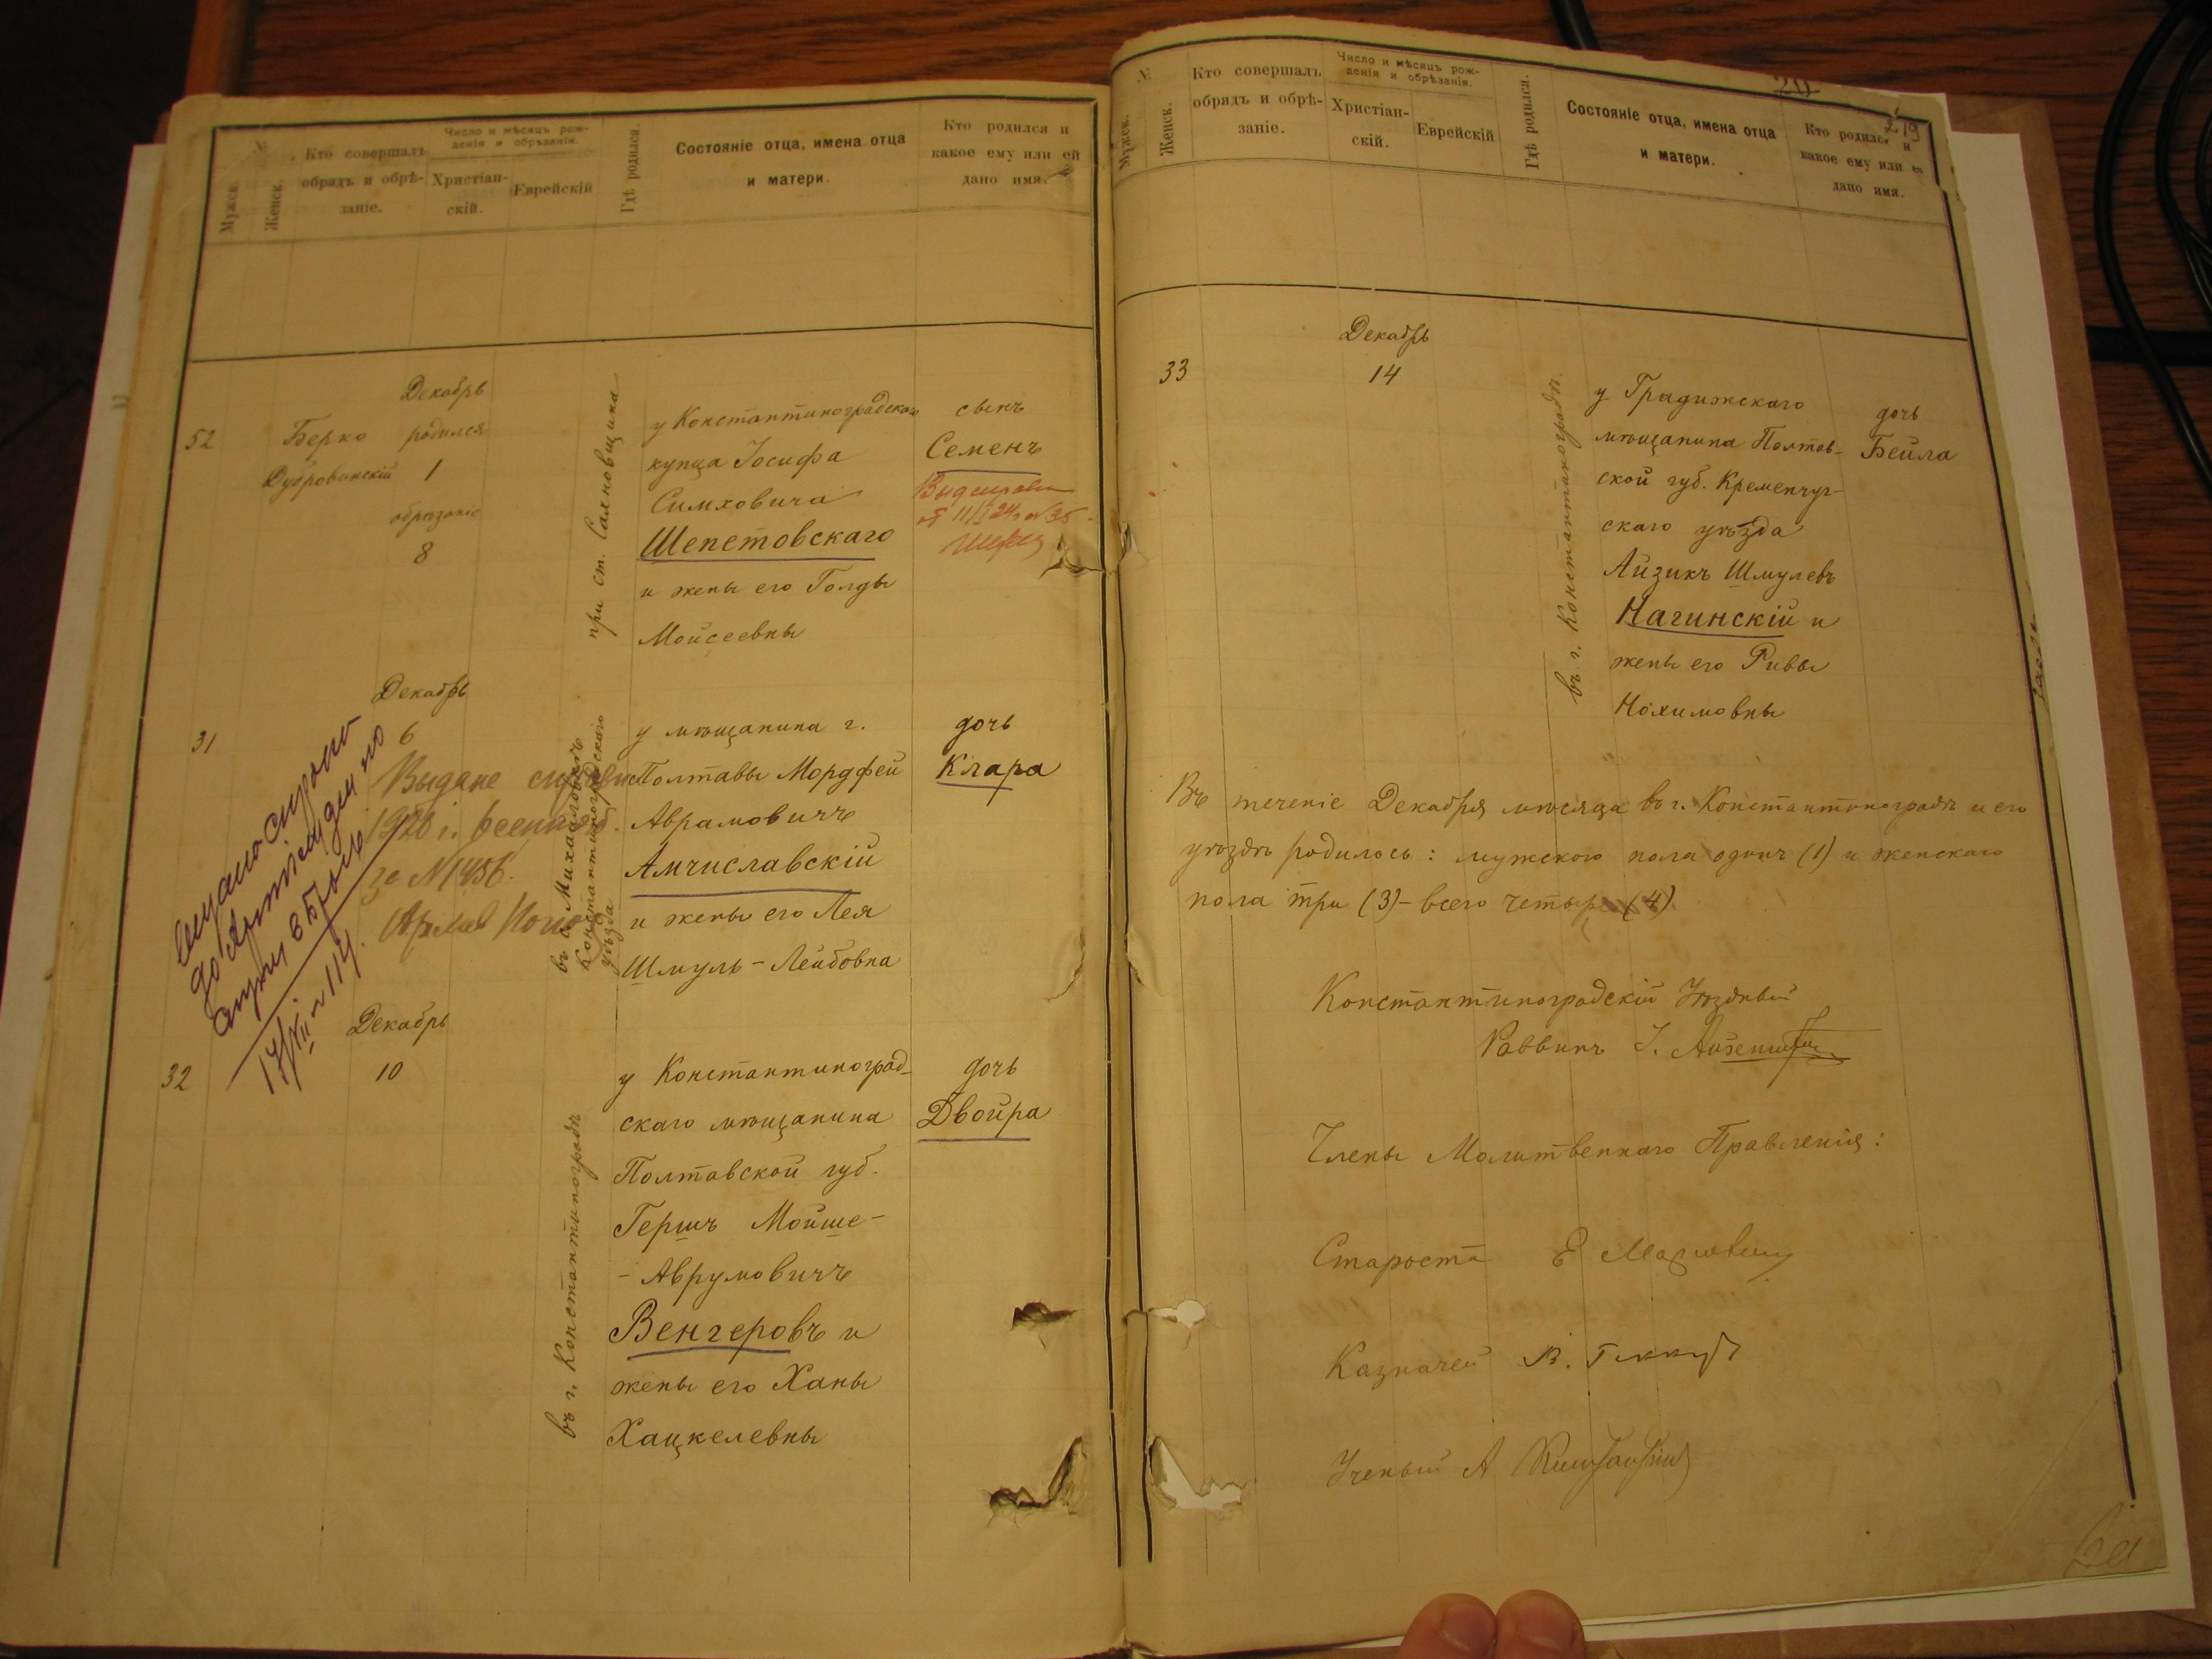 №
Мужск.
Женск.
Кто совершалъ
обрядъ и обрѣ-
заніе.
Число и мѣсяцъ рож-
денія и обрѣзанія.
Христіан-
скій.
Еврейскій
Гдѣ родился.
Состояніе отца, имена отца
и матери.
Кто родился и
какое ему или ей
дано имя.
52
Берко
Дуброванскій
Декабрь
родился
1
обрѣзаніе
8
при ст.
у Константиноградскаго
купца Іосифа
Симховича
Шепетовскаго
и жены его Голды
Моисеевны
сынъ
Семенъ
31
Декабрь
6
въ с.
Константиноградскаго
уѣзда
у мѣщанина г.
Полтавы Мордфей
Аврамовичъ
Амчиславскій
и жены его Лея
Шмуль-Лейбовна
дочь
Клара
32
Декабрь
10
въ г. Константиноградѣ
у Константиноград-
скаго мѣщанина
Полтавской губ.
Гершъ Мойше-
-Аврумовичъ
Венгеровъ и
жены его Ханы
Хацкелевны
дочь
Двойра
20
219
№
Мужск.
Женск.
Кто совершалъ
обрядъ и обрѣ-
заніе.
Число и мѣсяцъ рож-
денія и обрѣзанія.
Христіан-
скій.
Еврейскій
Гдѣ родился.
Состояніе отца, имена отца
и матери.
Кто родился и
какое ему или
дано имя.
33
Декабрь
14
въ г. Константиноградѣ.
у Градижскаго
мѣщанина Полтав-
ской губ. Кременчуг-
скаго уѣзда
Айзикъ Шмулевъ
Нагинскій и
жены его Ривы
Нохимовны
дочь
Бейла
Въ теченіе Декабря мѣсяца въ г. Константиноградѣ и его
уѣздѣ родилось: мужского пола одинъ (1) и женскаго
пола три (3) – всего четыре (4)
Константиноградскій Уѣздный
Раввинъ
Члены Молитвеннаго Правленія:
Староста
Казначей
Ученый А